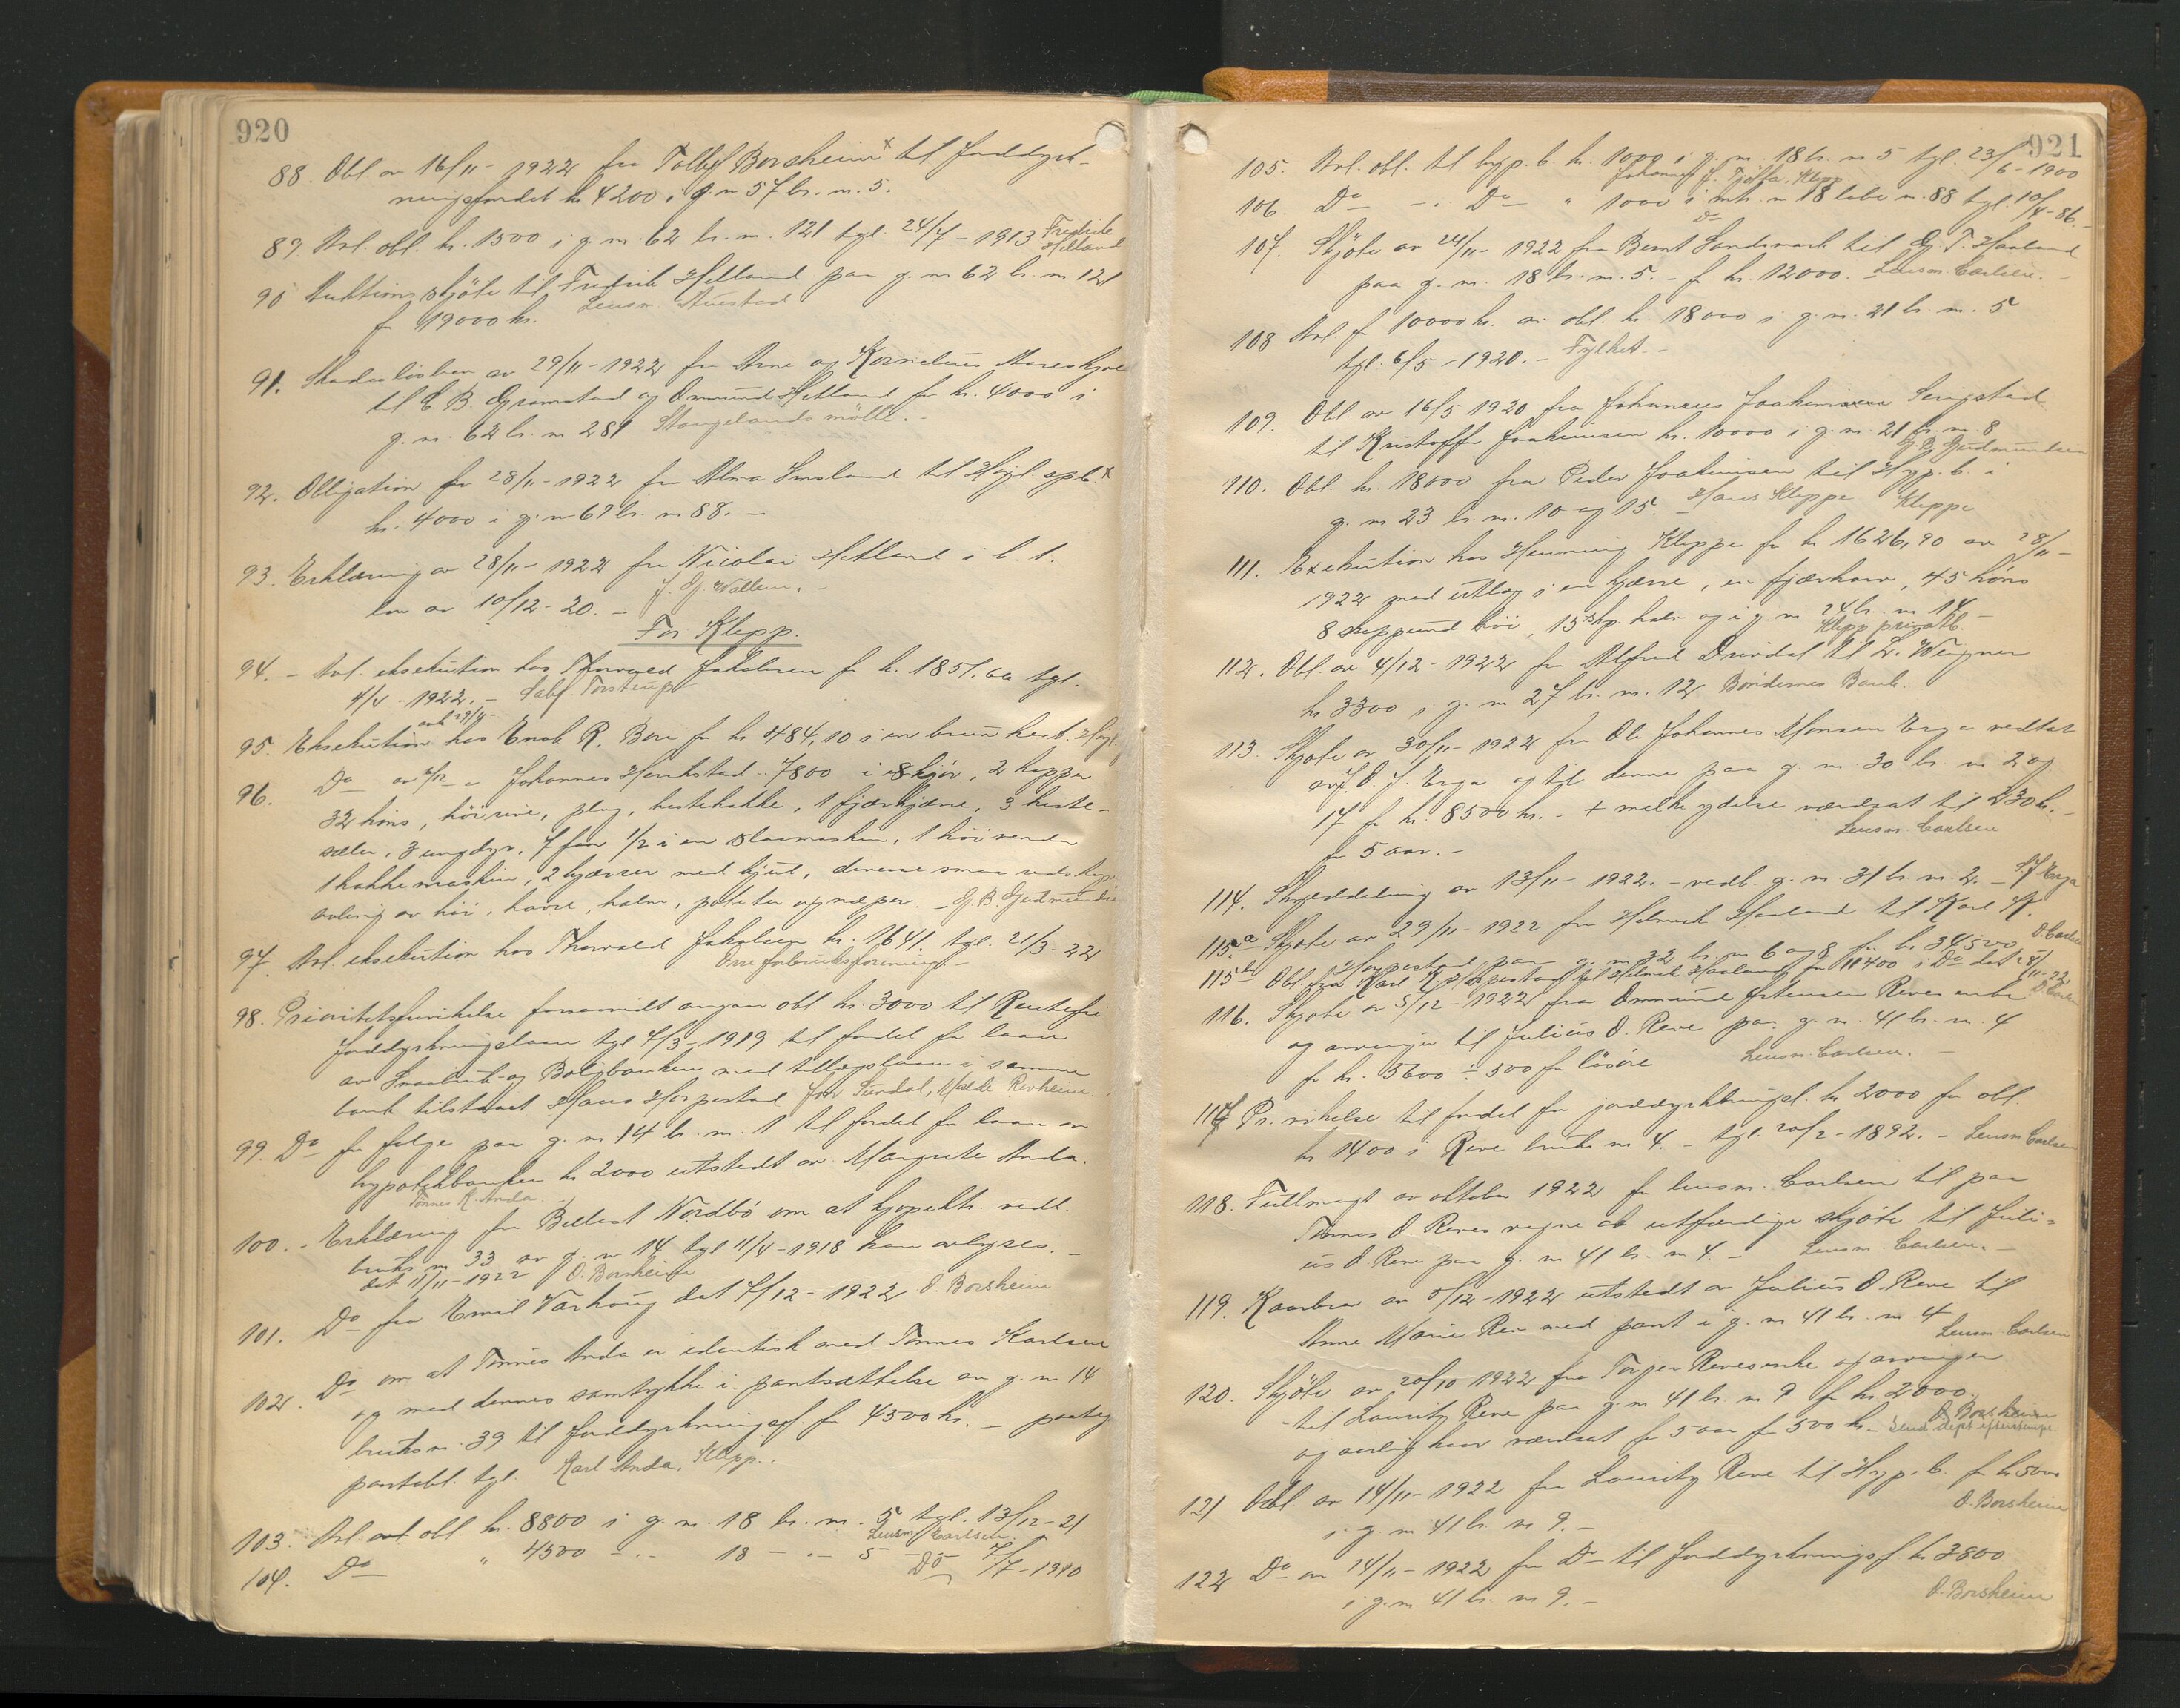 920
88. Obl. av 16/11-1922 fra Tollef Borsheim x til Jorddyrk-
ningsfondet kr 4200 i g.n 57 br.n. 5.
89. Avl. obl. kr. 1500 i g.n. 62 br.n. 121 tgl. 24/7-1913 Fredrik Helland
90 Auktionsskjöte til Fredrik Helland paa g.n 62 br.n 121
for 19000 kr. Lensm. Austad
91. Skadeslösbrev av 29/11-1922 fra Arne og Kornelius
til C. B. Gramstad og Ommund Hetland for kr. 4000 i
g.n. 62 br.n 281 Stangelands mölle.
92. Obligation av 28/11-1922 fra Alma Imsland til Högl. spb. x
kr. 4000 i g.n 69 br.n 88. -
93. Erklæring av 28/11-1922 fra Nicolai Hetland i b. 1.
lov av 10/12-20. - J. G. Wallem. -
For Klepp.
94. - Avl. eksekution hos Thorvald Jakobsen for kr. 1851.60 tgl.
4/4-1922. - Sakf. Torstrup
95. Eksekution avh 29/11 hos Enok R. Bore for kr 484,10 i en brun hest.
96. Do av 4/12 - Johannes Henkstad .. 7800 i 8 kjör, 2 hopper
32 höns, hörive, plog, hestehakke, 1 fjærkjærre, 3 heste-
seler, 3 ungdyr, 7 faar 1/2 i en slaamaskin, 1 höivender
1 hakkemaskin, 2 kjærrer med hjul, diverse smaa redskaper
avling av höi, havre, halm, poteter og næper. - G. B. Gudmundsen
97. Avl. eksekution hos Thorvald Jakobsen kr. 1641. tgl. 21/3-22
Orre forbruksforening. -
98. Prioritetsfravikelse forsaavidt angaar obl. kr. 3000 til Rentefri
Jorddyrkningslaan tgl 4/3-1919 til fordel for laan
av Smaabruk- og Boligbanken med tillægslaan i samme
bank tilstaaet Hans Horpestad Joh Turdal, Malde Revheim.
99. Do for følge paa g.n 14 br.n. 1 til fordel for laan av
hypotekbanken kr 2000 utstedt av Margrete Anda.
Tønnes K. Anda. -
100. - Erklæring fra Bellest Nordbö om at kjopektr. vedk.
bruks n 33 av g.n 14 tgl 11/4-1918 kan avlyses. -
dat 11/11-1922 O. Borsheim
101. Do fra Emil Varhaug dat 4/12-1922 O. Borsheim
102. Do om at Tønnes Anda er identisk med Tønnes Karlsen
og med dennes samtykke i pantsættelse av g.n 14
bruksn. 39 til Jorddyrkningsf. for 4500 kr. - paateg.
pantobl. tgl. Karl Anda, Klepp.
103. Avl. obl. kr. 8800 i g.n. 18 br.n. 5 tgl. 13/12-21
Lensm Carlsen.
104. Do " 4500 - .- 18 - .- 5 - Do 7/7-1910
921
105. Avl. obl. til hyp.b. kr. 1000 i g.n. 18 br.n 5 tgl. 23/6-1900
Johannes J. Tjötta, Klepp
106. Do - . Do " 1000 i mtr.n 18 löbe n. 88 tgl. 10/4-86. -
Do
107. Skjöte av 24/11-1922 fra Bernt Sandsmark til G. T. Haaland
paa g.n. 18 br.n. 5. - for kr. 12000. Lensm. Carlsen. -
108 Avl for 10000 kr. av obl. kr. 18000 i g.n. 21 br.n. 5
tgl. 6/5-1920. - Fylket. -
109. Obl. av 16/5 1920 fra Johannes Joakimsen Serigstad
til Kristoffer Joakimsen kr. 10000 i g.n. 21 br.n. 8
G. B. Gudmundsen
110. Obl. kr. 18000 fra Peder Joakimsen til Hyp.b. i
g.n 23 br.n. 10 og 15. - Hans Kleppe Kleppe
111. Exekution hos Henning Kleppe for kr 1626,90 av 28/11-
1922 med utlæg i en kjærre, en fjærharv, 45 höns
8 skippund höi, 15 skp. halm og i g.n 24 br.n 14 -
Klepp privatb.
112. Obl. av 4/12-1922 fra Alfred Drivdal til L. Weigner
kr 3300 i g.n 27 br.n. 12 Böndernes Bank.
113. Skjøte av 30/11-1922 fra Ole Johannes Monsen Erga vedtat
av J. O. J. Erga og til denne paa g.n. 30 br.n 2 og
17 for kr. 8500 kr. - + melkeydelse værdsat til 230 kr. -
for 5 aar. - Lensm. Carlsen
114. Skylddeling av 13/11-1922. - vedk. g.n. 31 br.n. 2. - Erga
115a Skjøte av 29/11-1922 fra Helmik Haaland til Karl K.
Horpestad paa g.n 32 br.n 6 og 8 for kr. 34500 O. Carlsen
115b Obl. fra Karl K. Horpestad til Helmik Haaland for 11400 i Do dat 28/11-22
116. Skjøte av 5/12-1922 fra Ommund Østensen Reves enke
og arvinger til Julius O. Reve paa g.n. 41 br.n. 4
for kr. 5600 ÷ 500 for lösöre Lensm. Carlsen. -
117 Pr. vikelse til fordel for jorddyrkningsl. kr 2000 for obl.
kr 1400 i Reve bruks n 4. - tgl. 20/2-1892. - Lensm Carlsen
118. Fuldmagt av oktober 1922 for lensm. Carlsen til paa
Tønnes O. Reves vegne at utfærdige skjöte til Juli-
us O. Reve paa g.n 41 br.n 4. - Lensm. Carlsen. -
119. Kaarbrev av 5/12-1922 utstedt av Julius O. Reve til
Anne Marie Reve med pant i g.n 41 br.n. 4
Lensm. Carlsen
120. Skjöte av 20/10 1922 fra Torjer Revesenke og arvinger
til Lauritz Reve paa g.n 41 br.n 9 for kr. 2000.
og aarlig kaar værdsat for 5 aar for 500 kr. - O. Borsheim
121 Obl. av 14/11-1922 fra Lauritz Reve til Hyp.b. for kr 5000
i g.n 41 br.n 9. - O. Borsheim
122 Do av 14/11-1922 fra Do til Jorddyrkningsf kr 3800
i g.n 41 br.n 9. - O. Borsheim